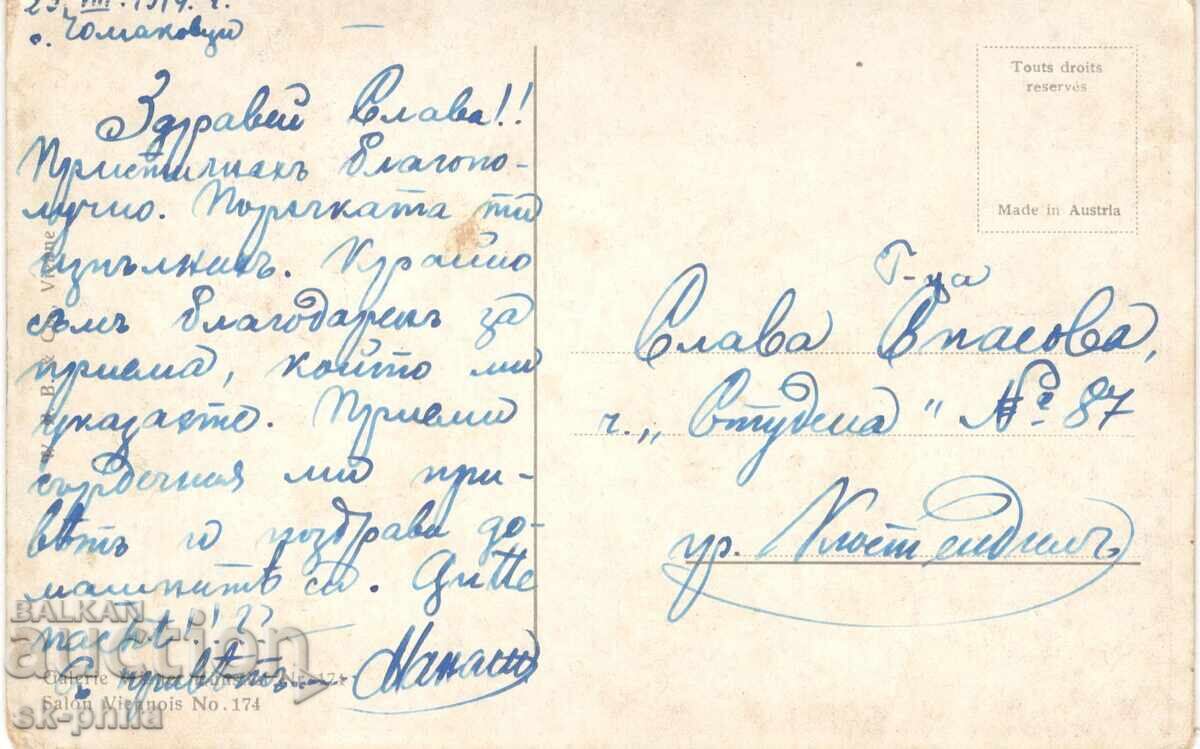 29. VIII. 1914 г.
с. Чомаковци
Здравей Слава!!
Пристигнахъ благопо-
лучно. Поръчката ти
изпълнихъ. Крайно
съмъ благодаренъ за
приема, който ми
указахте. Приеми
сърдечния ми при-
вѣтъ и поздрави до-
машнитѣ си.
Съ привѣтъ
Touts droits
reservés
Made in Austria
Г-ца
Слава Спасова,
ч. „Студена" № 87
гр. Кюстендилъ
Salon Viennois No. 174
BALKAN
auction
sk-phila